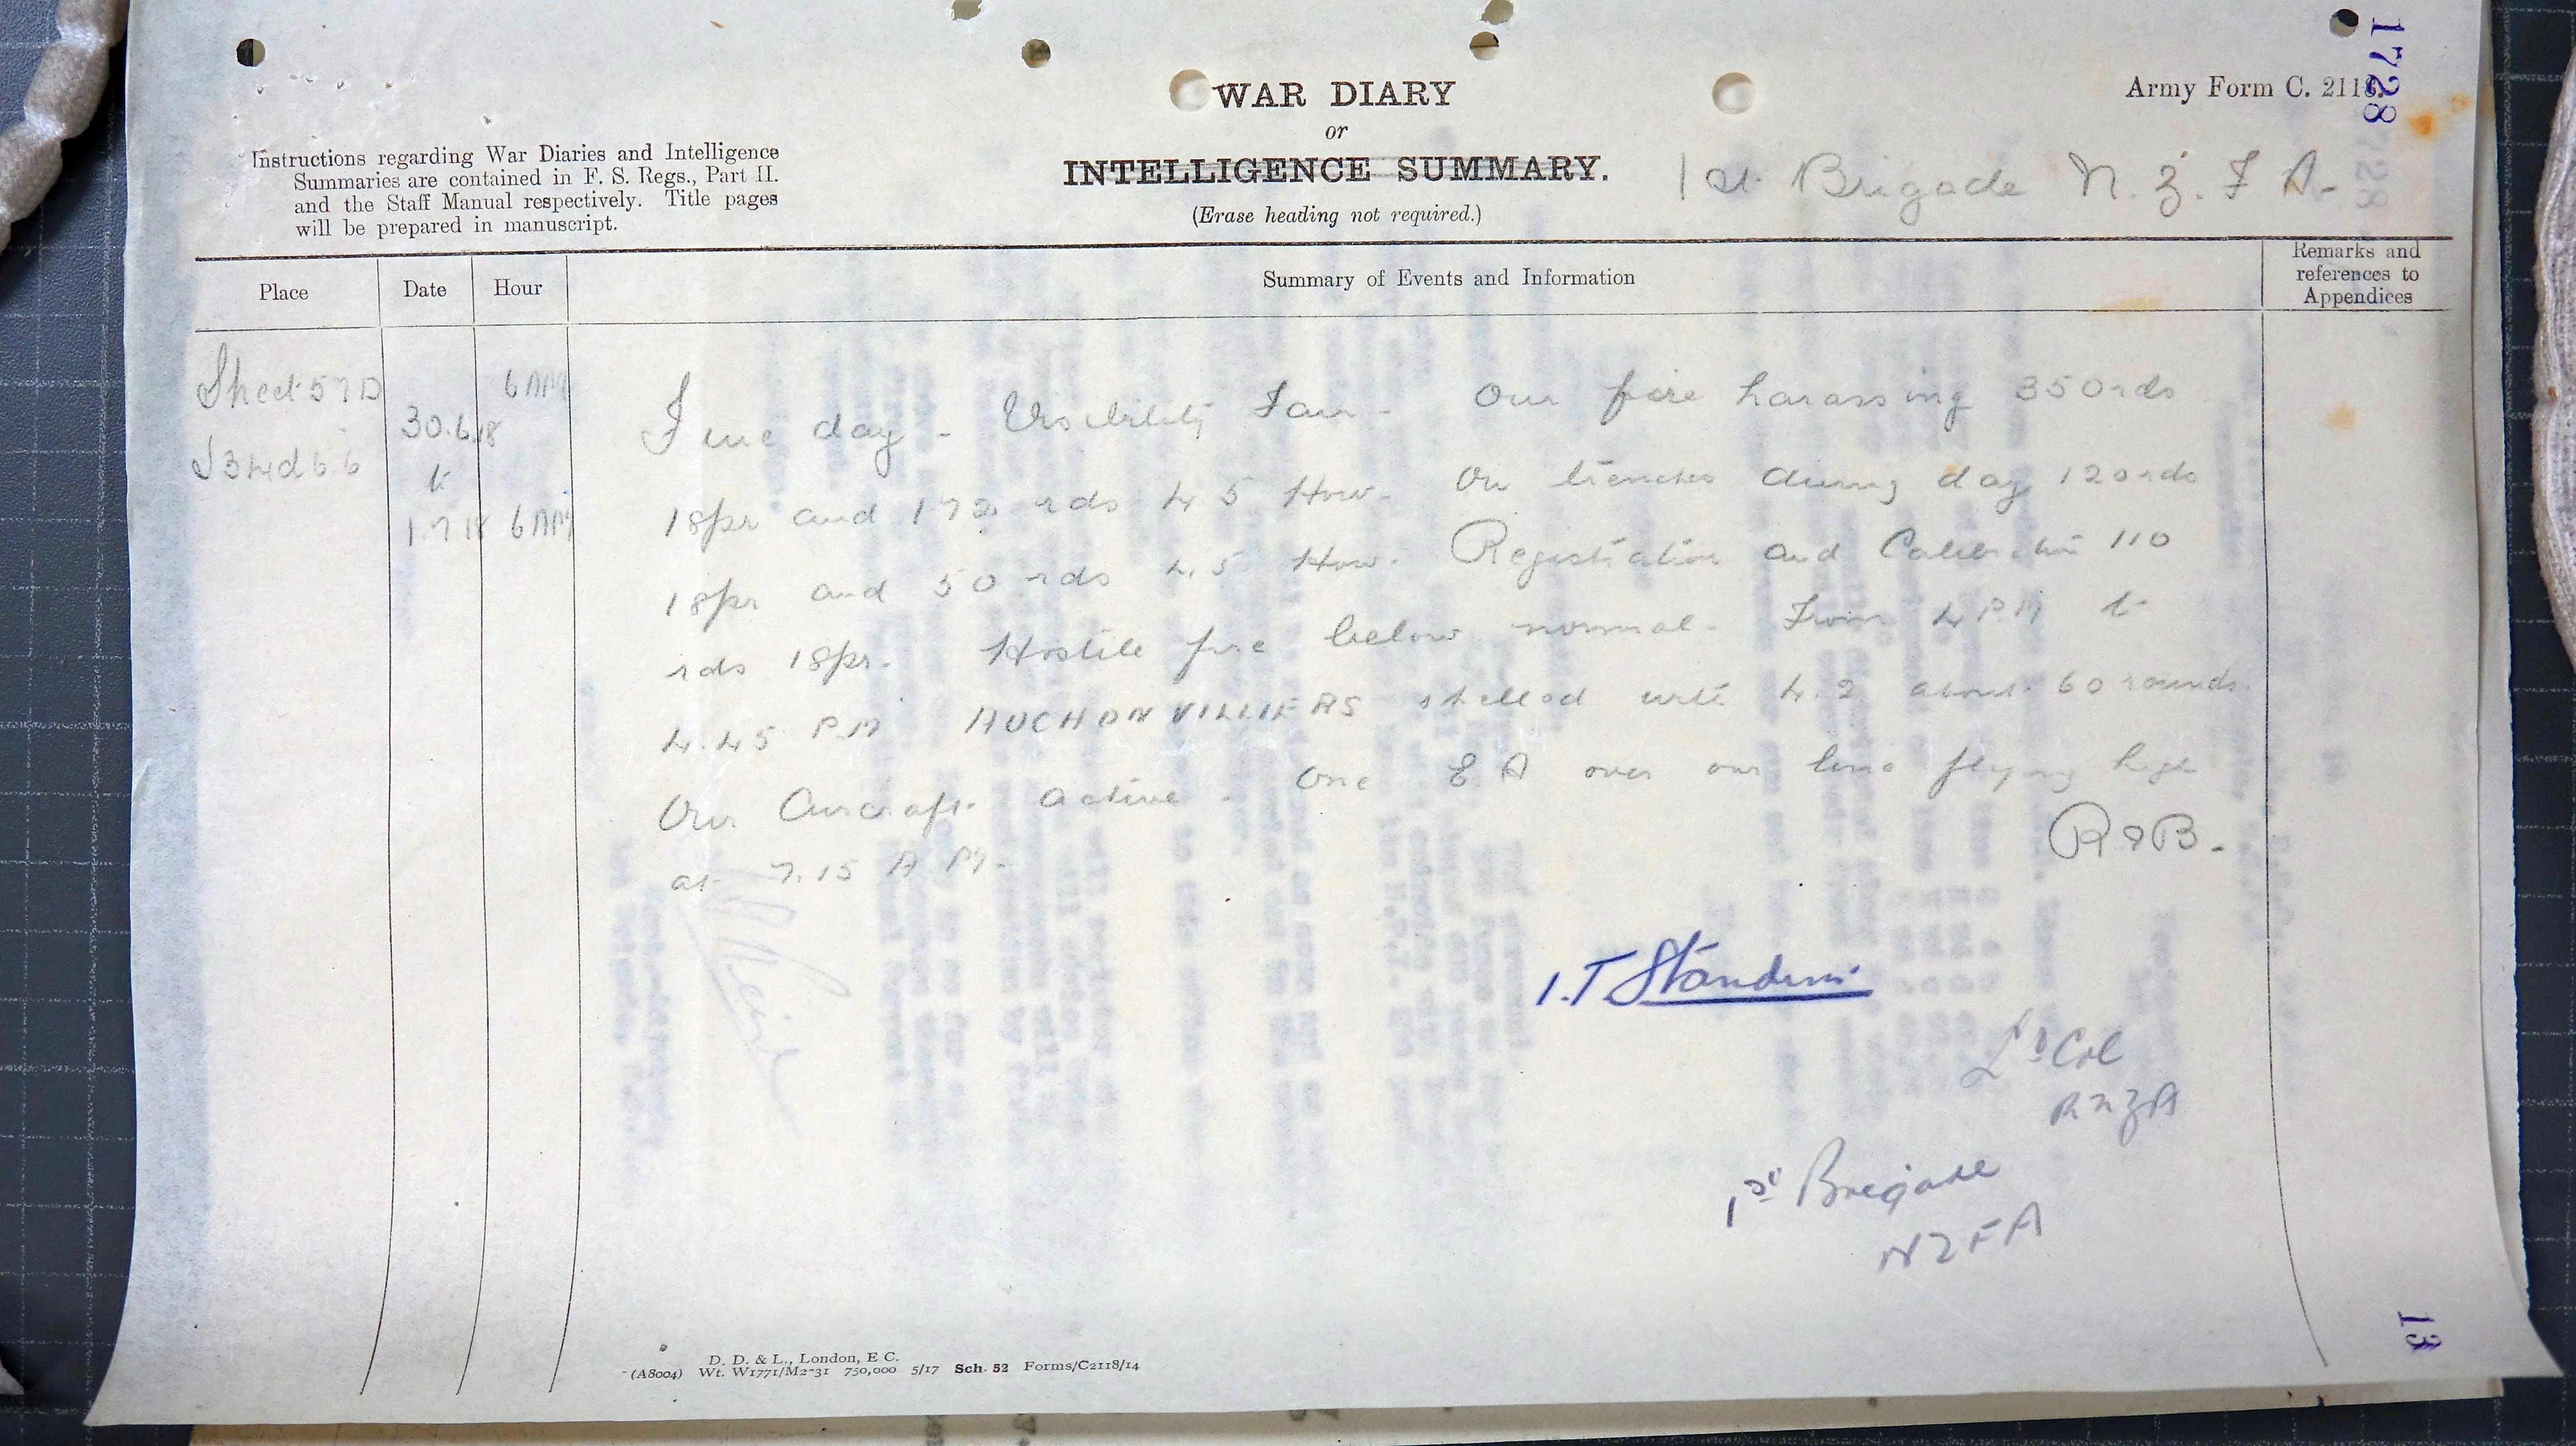 1728
WAR DIARY
or
INTELLIGENCE SUMMARY.
(Erase heading not required.)
Army Form C. 2118.
Instructions regarding War Diaries and Intelligence
Summaries are contained in F. S. Regs., Part II.
and the Staff Manual respectively. Title pages
will be prepared in manuscript.
1st Brigade N. Z. F A-
Place Date Hour Summary of Events and Information Remarks and references to Appendices
Sheet 57D
30.6.18 6 AM
to
1.7.18 6 AM
Fine day - Visibility Fair - Our fire harassing 350 rds
18pr and 172 rds 4.5 How. On trenches during day 120 rds
18pr and 50 rds 4.5 How. Registration and Calibration 110
rds 18pr. Hostile fire below normal. From 4 PM to
4.45 PM AUCHONVILLIERS shelled with 4.2 about 60 rounds.
Our Aircraft active - One E A over our line flying high
at 7.15 A M.
I.T Standish
Lt Col
RNZA
1st Brigade
NZFA
D. D. & L., London, E C.
(A8004) Wt. W1771/M2-31 750,000 5/17 Sch. 52 Forms/C2118/14
13